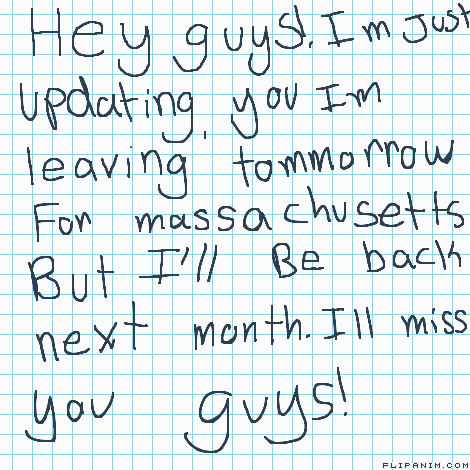 Hey guys!, Im just
updating, you Im
leaving tommorrow
For massachusetts
But I'll Be back
next month. Ill miss
you guys!
FLIPANIM.COM